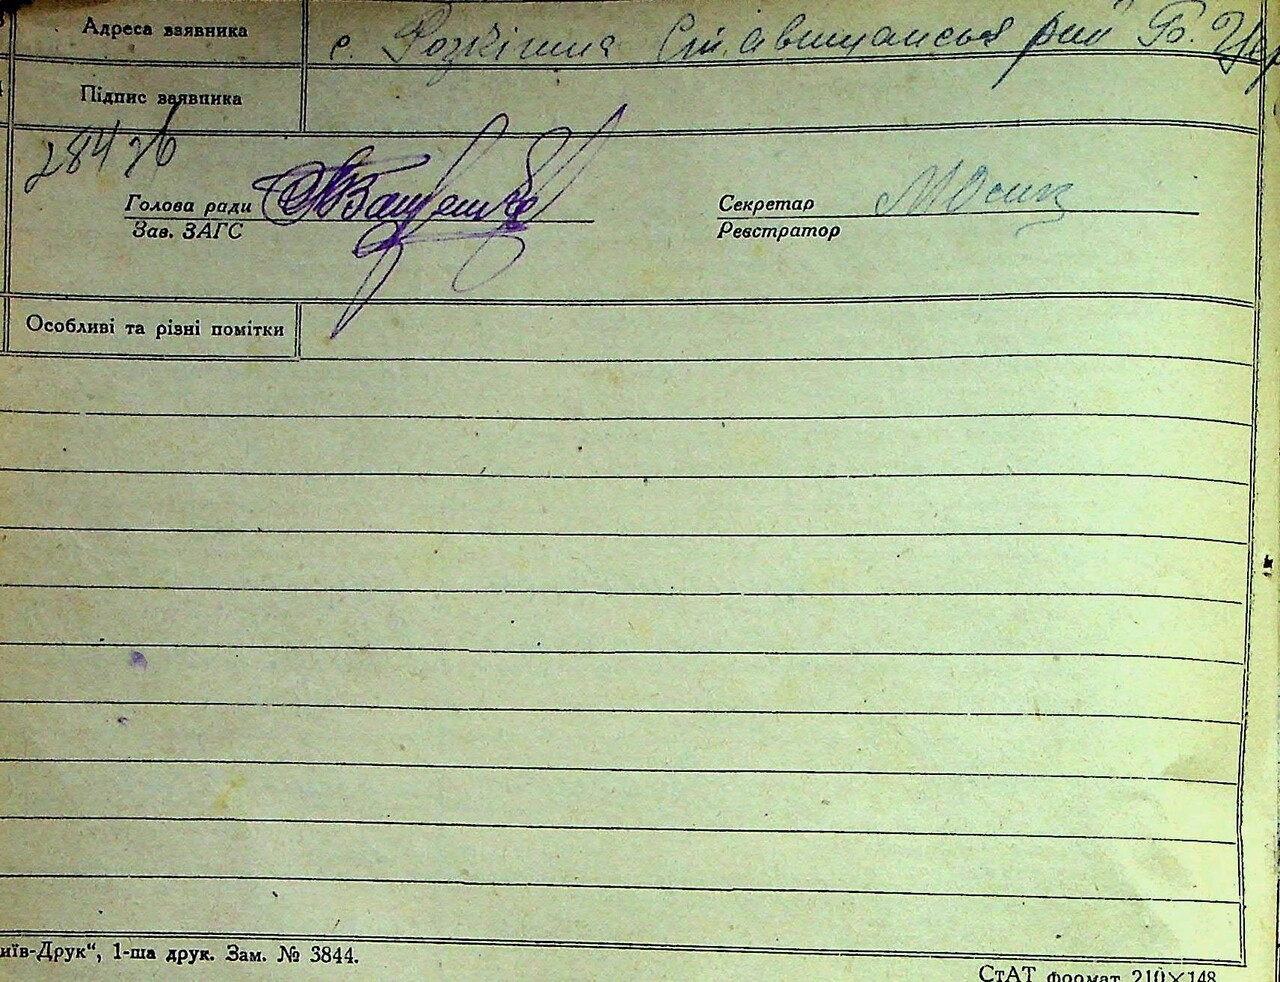 Адреса заявника
с. Розкішна Ставищанськ рай Б. Цер
Підпис заявника
284
Голова ради
Зав. ЗАГС
Секретар
Реєстратор
Особливі та різні помітки
иїв-Друк“, 1-ша друк. Зам. № 3844.
СтАТ формат 210×148